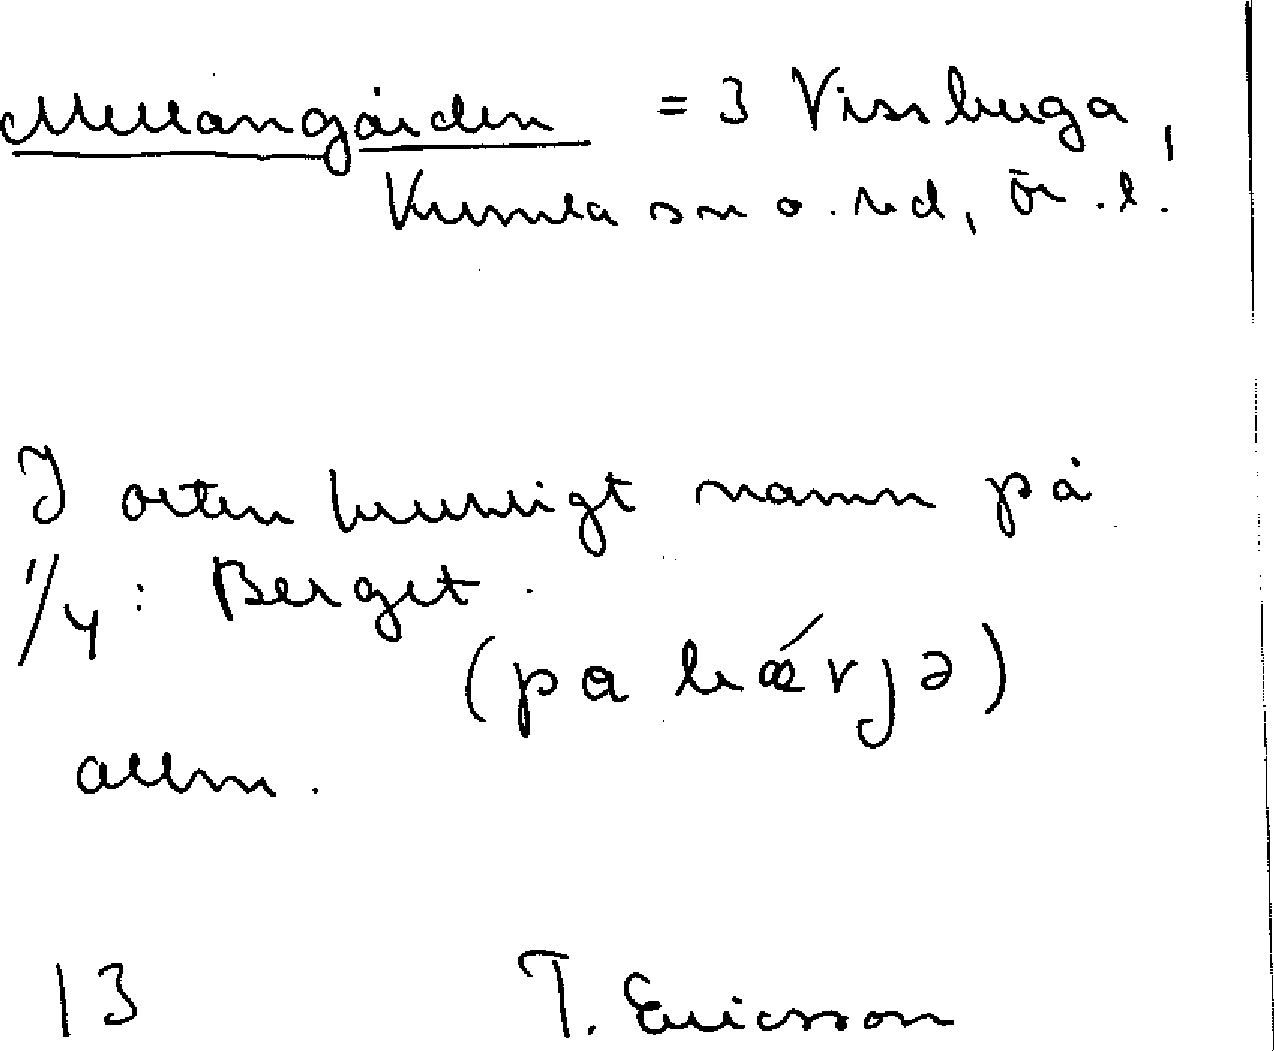 Mellangården = 3 Vissbuga,
Kumla sn o. hd, Ör. l.
I orten kunnigt namn på
1/4: Berget.
(pa bǽrjə)
allm.
13 T. Ericsson